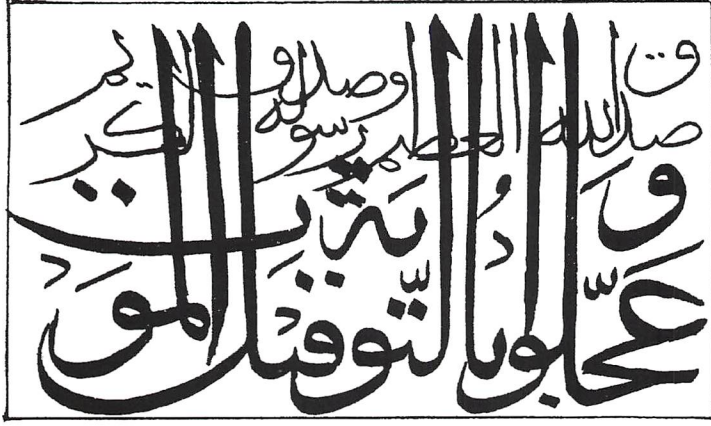 صدق الله العظيم وصدق رسوله الكريم
وَعَجّلوا بالتّوبَة قبل الموت